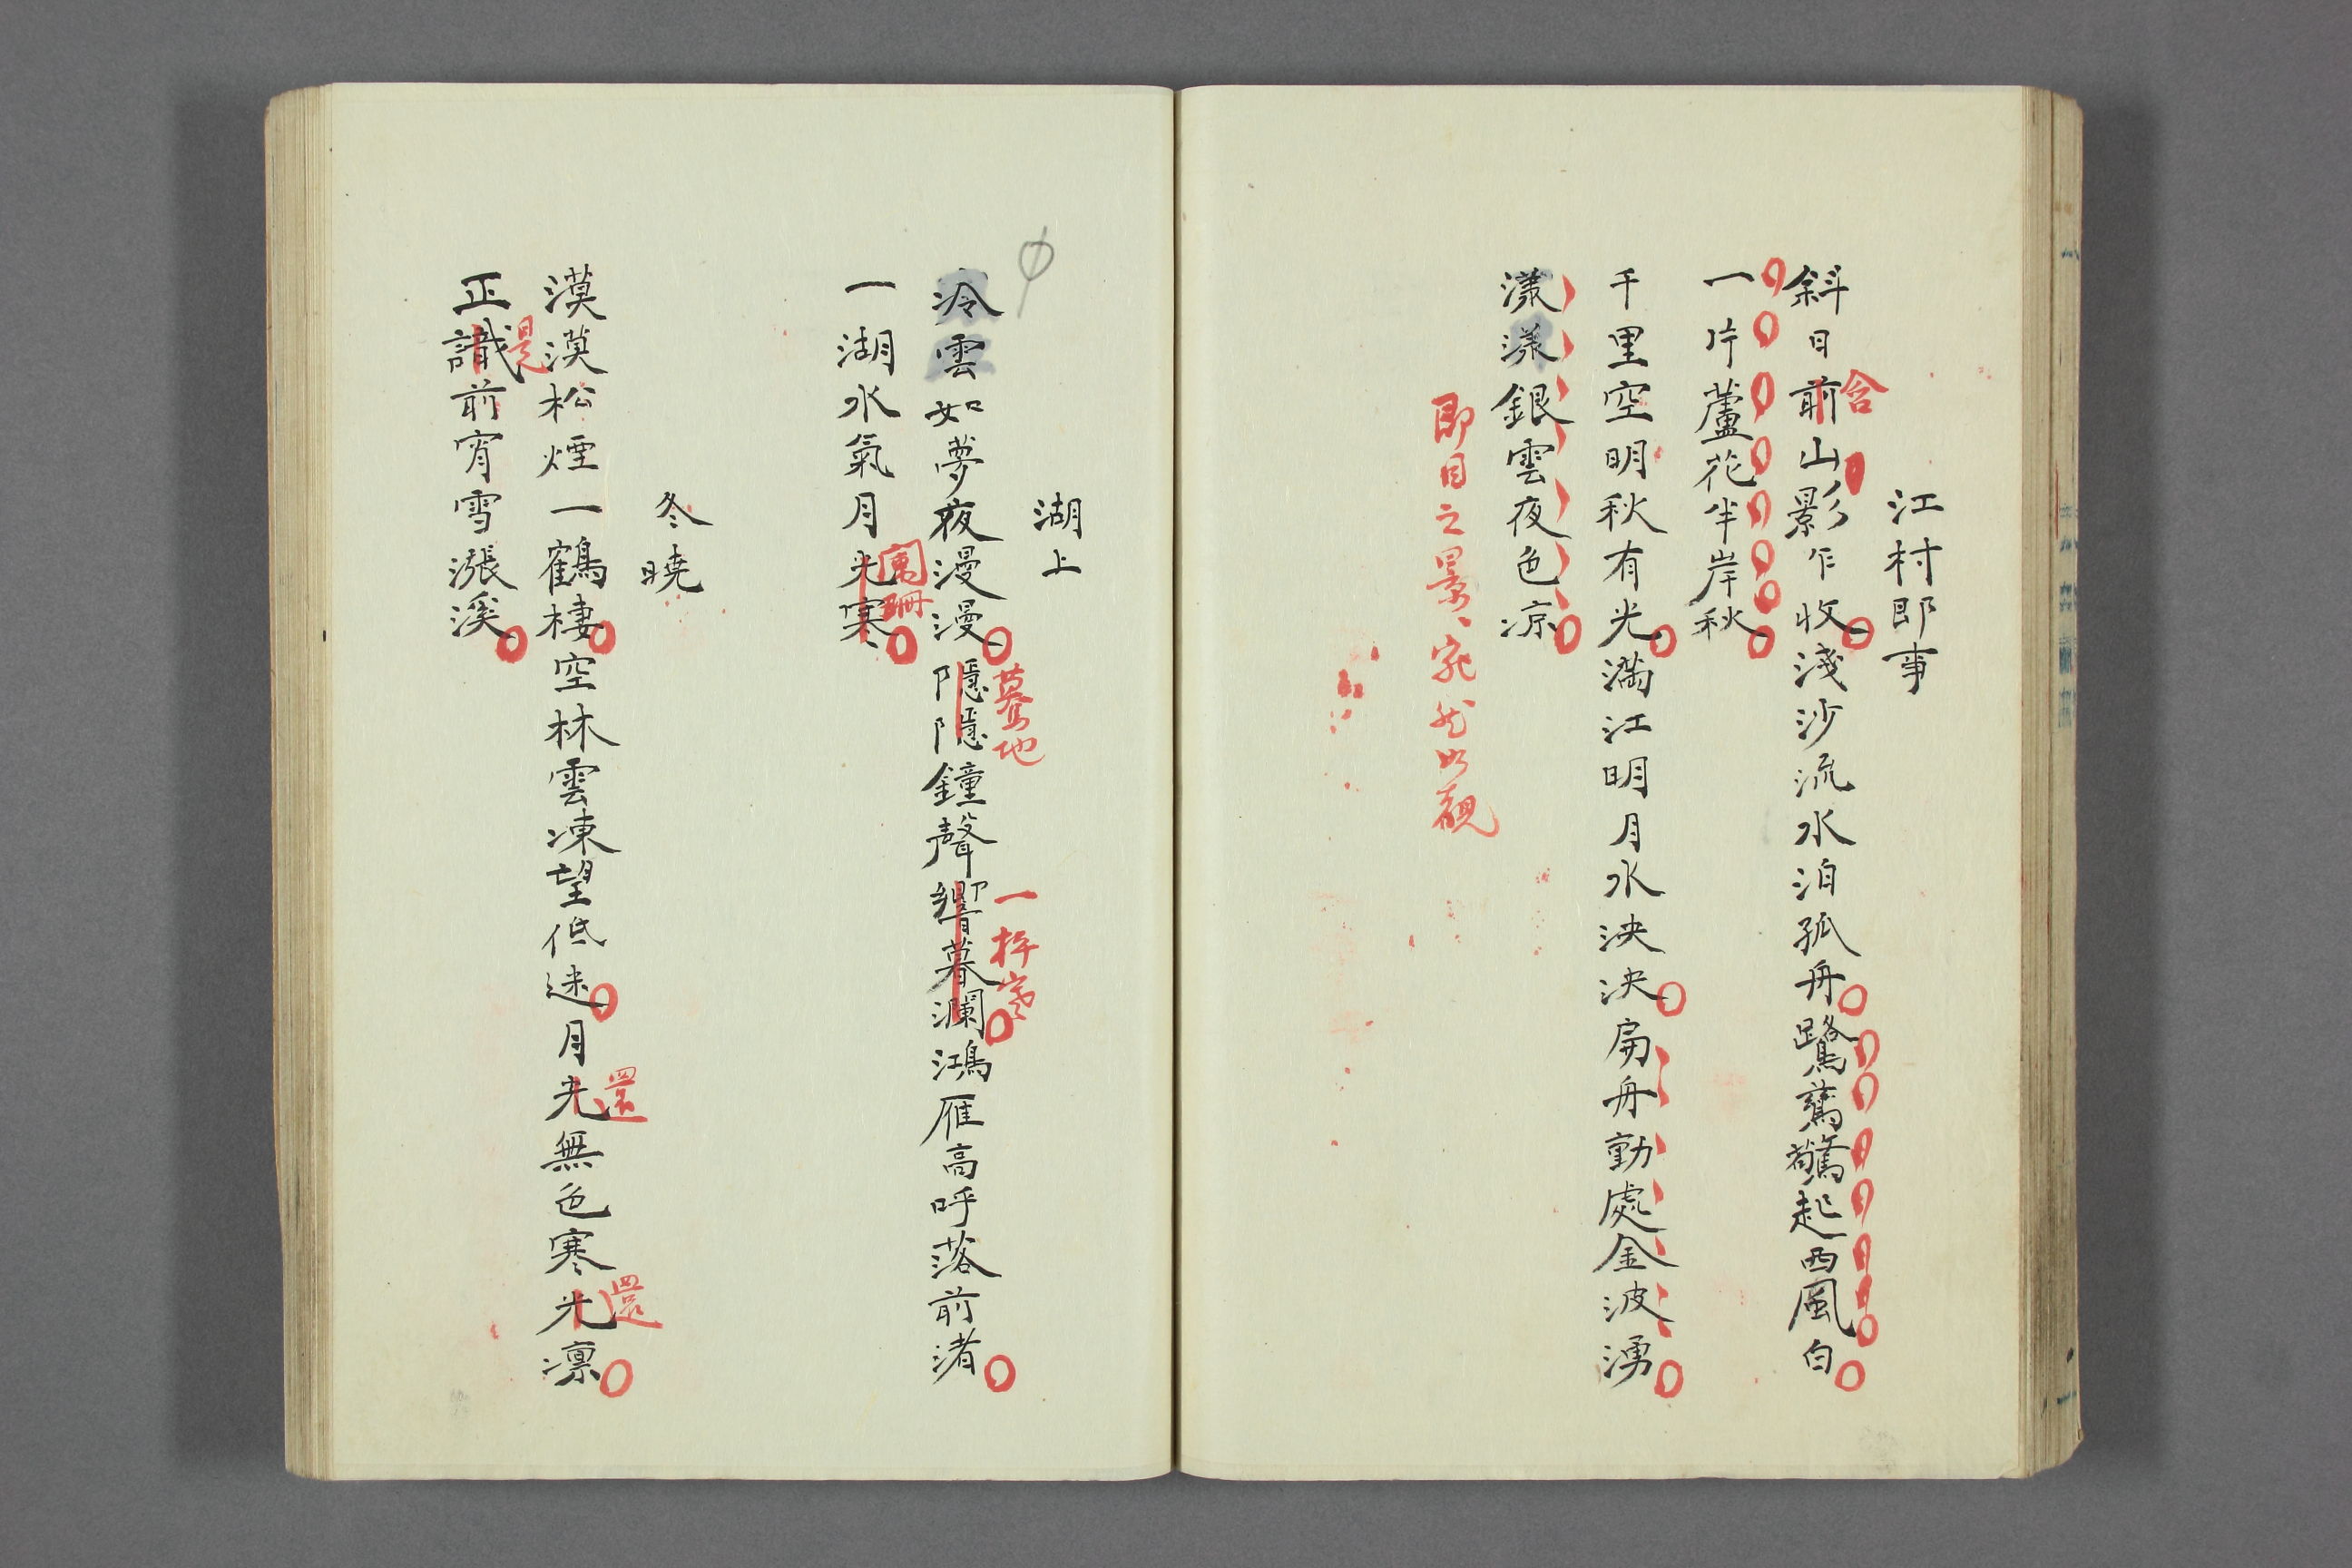 江村即事
斜日前山影乍收淺沙流水泊孤舟鷺鷥驚起西風白
含
一片蘆花半岸秋
千里空明秋有光滿江明月水泱泱扁舟動處金波湧
漾漾銀雲夜色凉
即目之景、宛然如覩
湖上
冷雲如夢夜漫漫隱隱鐘聲響暮瀾鴻雁高呼落前渚
驀地
一杵寒
一湖水氣月光寒
闌珊
冬曉
漠漠松煙一鶴棲空林雲凍望低迷月光無色寒光凛
還
還
正識前宵雪漲溪
是